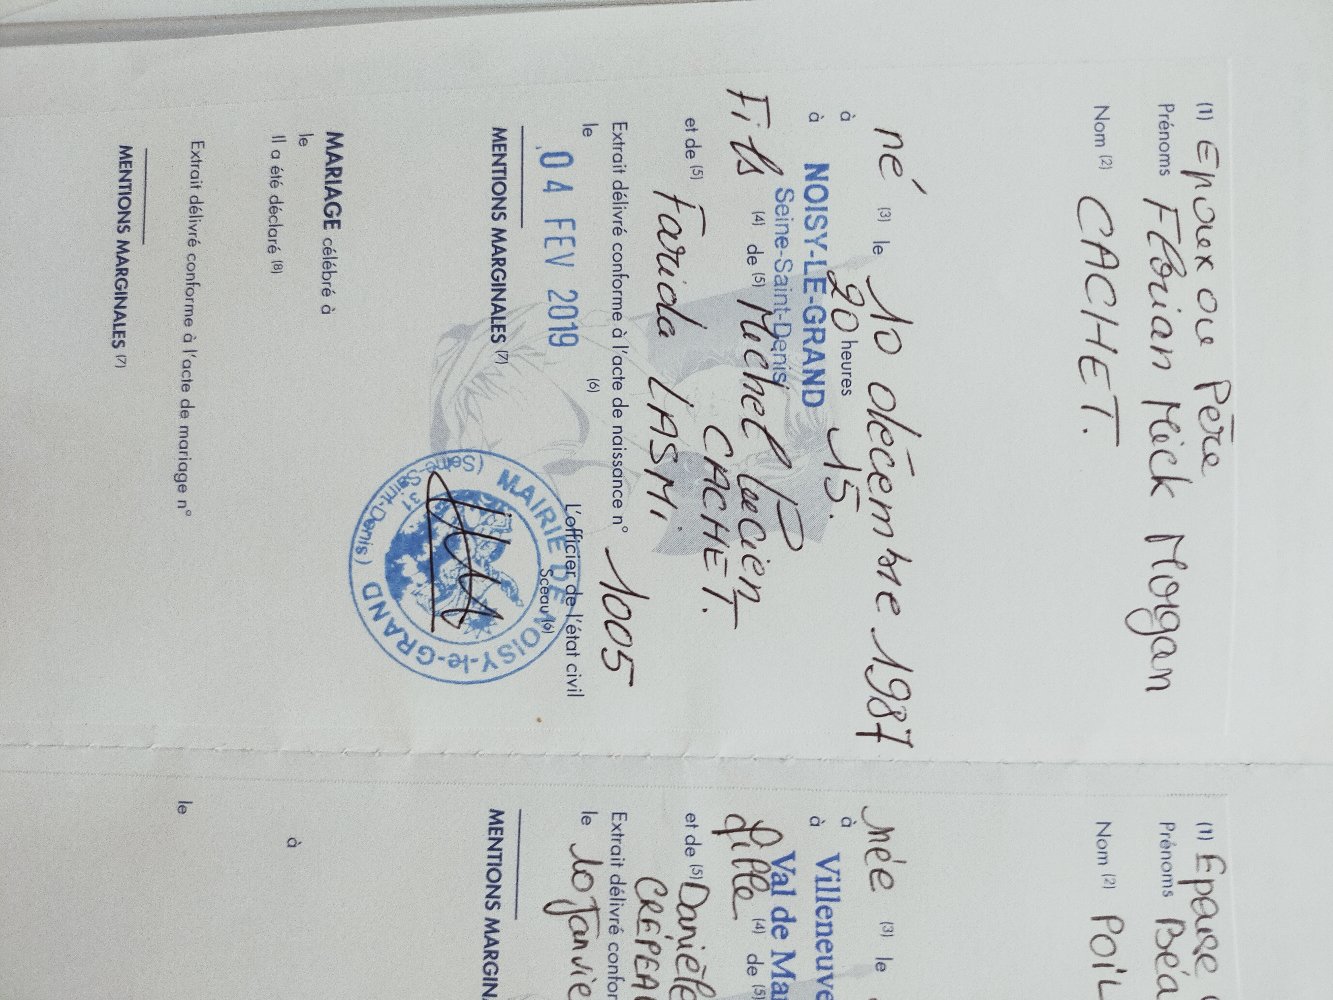 (1) Epoux ou Père
Prénoms Florian Mick Morgan
Nom (2) CACHET.
né (3) le 10 décembre 1987
à 20 heures 15.
à NOISY-LE-GRAND
Seine-Saint-Denis
Fils (4) de (5) Michel Lucien
CACHET.
et de (5) Farida LASMi
Extrait délivré conforme à l'acte de naissance n° 1005
le 04 FEV 2019 (6)
L'officier de l'état civil
Sceau (6)
MAIRIE DE NOISY-le-GRAND
(Seine-Saint-Denis)
31
MENTIONS MARGINALES (7)
MARIAGE célébré à
le
Il a été déclaré (8)
Extrait délivré conforme à l'acte de mariage n°
MENTIONS MARGINALES (7)
(1) Epouse
Prénoms Béa
Nom (2) POIL
née (3) le
à
à Villeneuve
Val de Mar
fille (4) de (5)
et de (5) Danièle
CRÉPEAU
Extrait délivré confor
le 10 Janvie
MENTIONS MARGIN
à
le